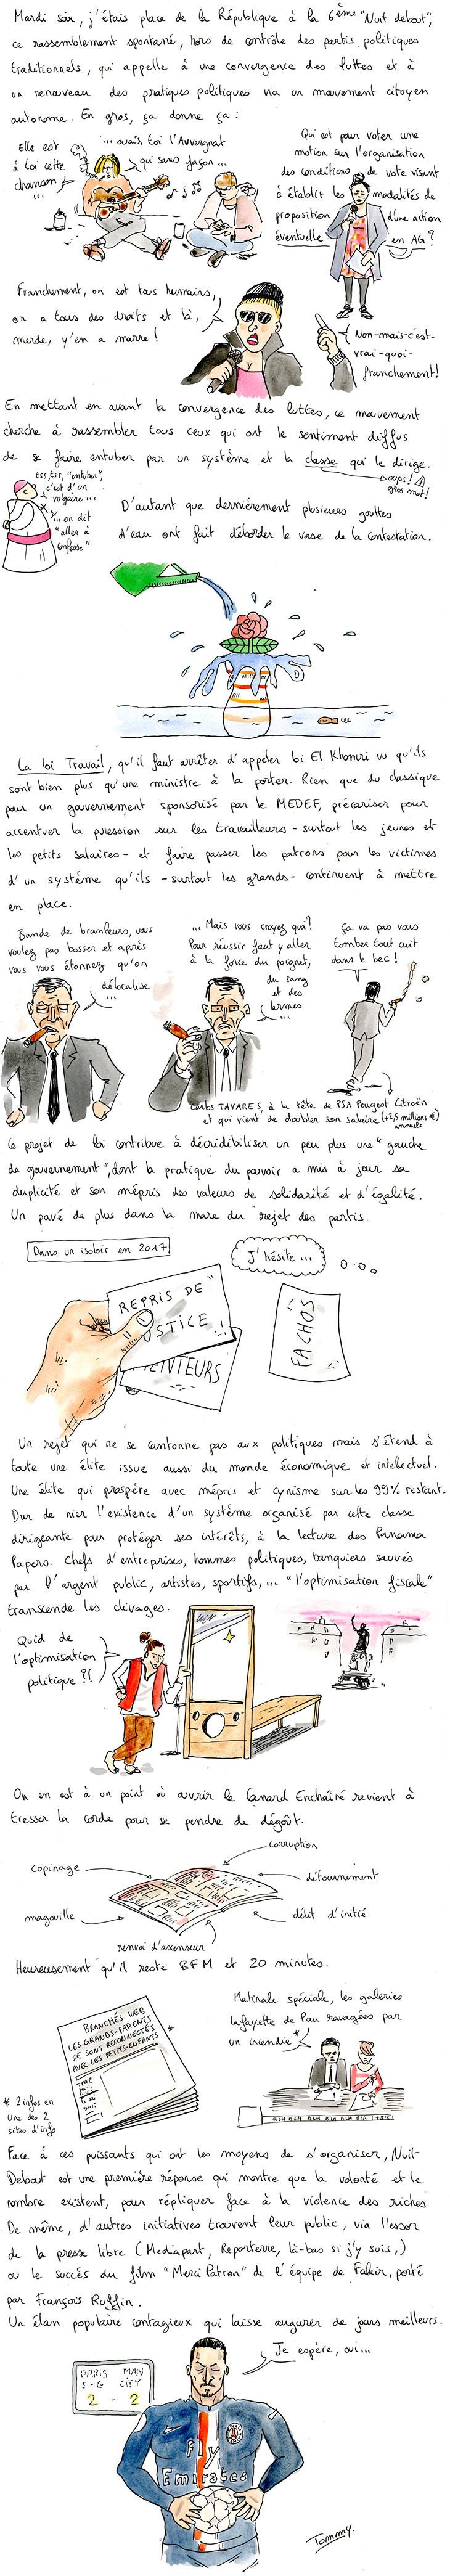 Mardi soir, j'étais place de la République à la 6ème "Nuit debout",
ce rassemblement spontané, hors de contrôle des partis politiques
traditionnels, qui appelle à une convergence des luttes et à
un renouveau des pratiques politiques via un mouvement citoyen
autonome. En gros, ça donne ça :
Elle est
à toi cette
chanson
...
... ouais, toi l'Auvergnat
qui sans façon ...
Qui est pour voter une
motion sur l'organisation
des conditions de vote visant
à établir les modalités de
proposition d'une action
éventuelle en AG ?
Franchement, on est tous humains,
on a tous des droits et là,
merde, y'en a marre !
Non-mais-c'est-
vrai-quoi-
franchement!
En mettant en avant la convergence des luttes, ce mouvement
cherche à rassembler tous ceux qui ont le sentiment diffus
de se faire entuber par un système et la classe qui le dirige.
oups!
gros mot!
tss, tss, "entuber",
c'est d'un
vulgaire ...
... on dit
"aller à
confesse"
D'autant que dernièrement plusieurs gouttes
d'eau ont fait déborder le vase de la contestation.
La loi Travail, qu'il faut arrêter d'appeler loi El Khomri vu qu'ils
sont bien plus qu'une ministre à la porter. Rien que du classique
pour un gouvernement sponsorisé par le MEDEF, précariser pour
accentuer la pression sur les travailleurs - surtout les jeunes et
les petits salaires - et faire passer les patrons pour les victimes
d'un système qu'ils - surtout les grands - continuent à mettre
en place.
Bande de branleurs, vous
voulez pas bosser et après
vous vous étonnez qu'on
délocalise
...
... Mais vous croyez quoi?
Pour réussir faut y aller
à la force du poignet,
du sang
et des
larmes
...
Ça va pas vous
tomber tout cuit
dans le bec !
Carlos TAVARES, à la tête de PSA Peugeot Citroën
et qui vient de doubler son salaire (+2,5 millions €)
annuels
Ce projet de loi contribue à décrédibiliser un peu plus une "gauche
de gouvernement", dont la pratique du pouvoir a mis à jour sa
duplicité et son mépris des valeurs de solidarité et d'égalité.
Un pavé de plus dans la mare du rejet des partis.
Dans un isoloir en 2017
J'hésite ...
REPRIS DE
STICE
MENTEURS
FACHOS
Un rejet qui ne se cantonne pas aux politiques mais s'étend à
toute une élite issue aussi du monde économique et intellectuel.
Une élite qui prospère avec mépris et cynisme sur les 99% restant.
Dur de nier l'existence d'un système organisé par cette classe
dirigeante pour protéger ses intérêts, à la lecture des Panama
Papers. Chefs d'entreprises, hommes politiques, banquiers sauvés
par l'argent public, artistes, sportifs, ... "l'optimisation fiscale"
transcende les clivages.
Quid de
l'optimisation
politique ?!
On en est à un point où ouvrir le Canard Enchaîné revient à
tresser la corde pour se pendre de dégoût.
corruption
copinage
détournement
magouille
délit d'initié
renvoi d'ascenseur
Heureusement qu'il reste BFM et 20 minutes.
BRANCHÉS WEB
LES GRANDS-PARENTS
SE SONT RECONNECTÉS
AVEC LES PETITS-ENFANTS *
Matinale spéciale, les galeries
Lafayette de Pau ravagées par
un incendie *
* 2 infos en
une des 2
sites d'info
BLA BLA BLA BLA BLA BLA
Face à ces puissants qui ont les moyens de s'organiser, Nuit
Debout est une première réponse qui montre que la volonté et le
nombre existent, pour répliquer face à la violence des riches.
De même, d'autres initiatives trouvent leur public, via l'essor
de la presse libre (Mediapart, Reporterre, Là-bas si j'y suis,)
ou le succès du film "Merci Patron" de l'équipe de Fakir, porté
par François Ruffin.
Un élan populaire contagieux qui laisse augurer de jours meilleurs.
Je espère, oui...
PARIS MAN
S-G CITY
2 - 2
Fly
Emirates
Tommy.